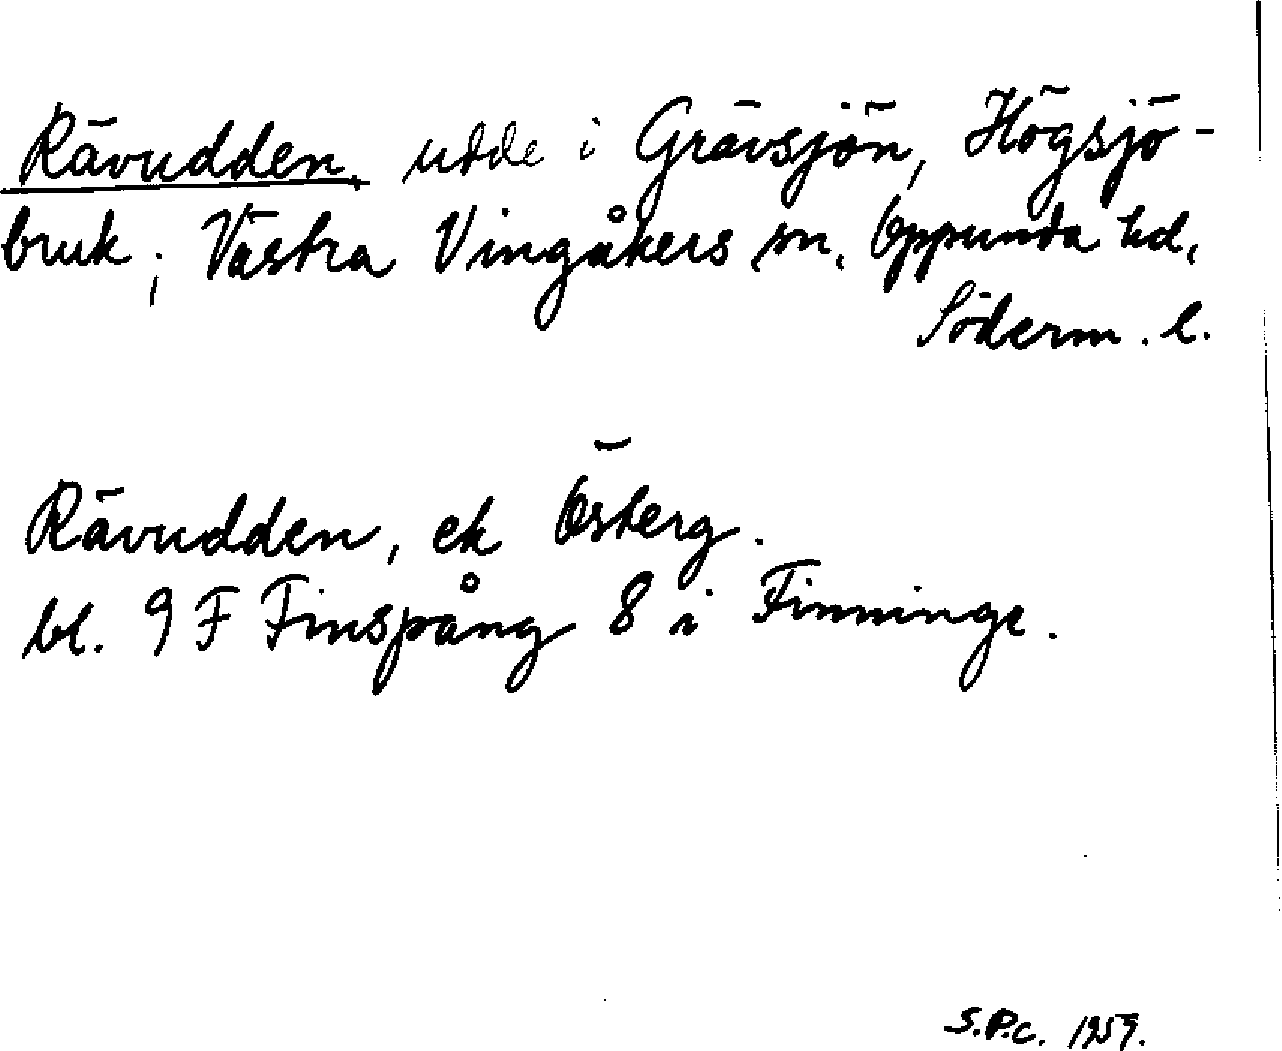 Rävudden, udde i Grävsjön, Högsjö-
bruk; Västra Vingåkers sn, Oppunda hd,
Söderm. l.
Rävudden, ek Österg.
bl. 9 F Finspång 8 i Finninge.
S.P.C. 1959.